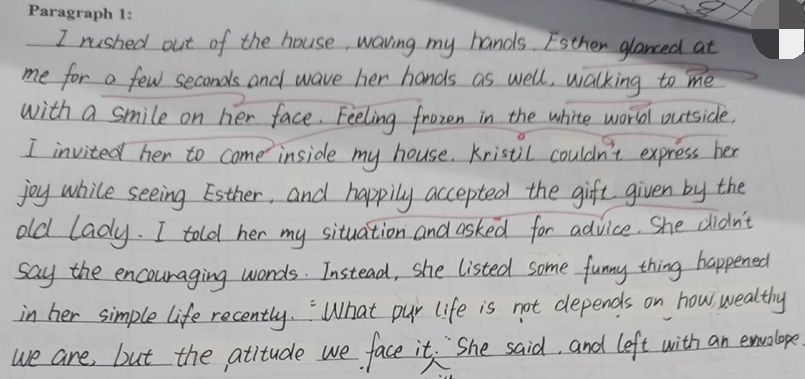 Paragraph 1:
I rushed out of the house, waving my hands. Esther glanced at
me for a few seconds and wave her hands as well, walking to me
with a smile on her face. Feeling frozen in the white world outside,
I invited her to come inside my house. Kristil couldn't express her
joy while seeing Esther, and happily accepted the gift given by the
old lady. I told her my situation and asked for advice. She didn't
say the encouraging words. Instead, she listed some funny thing happened
in her simple life recently. "What our life is not depends on how wealthy
we are, but the atitude we face it." She said, and left with an envolope.